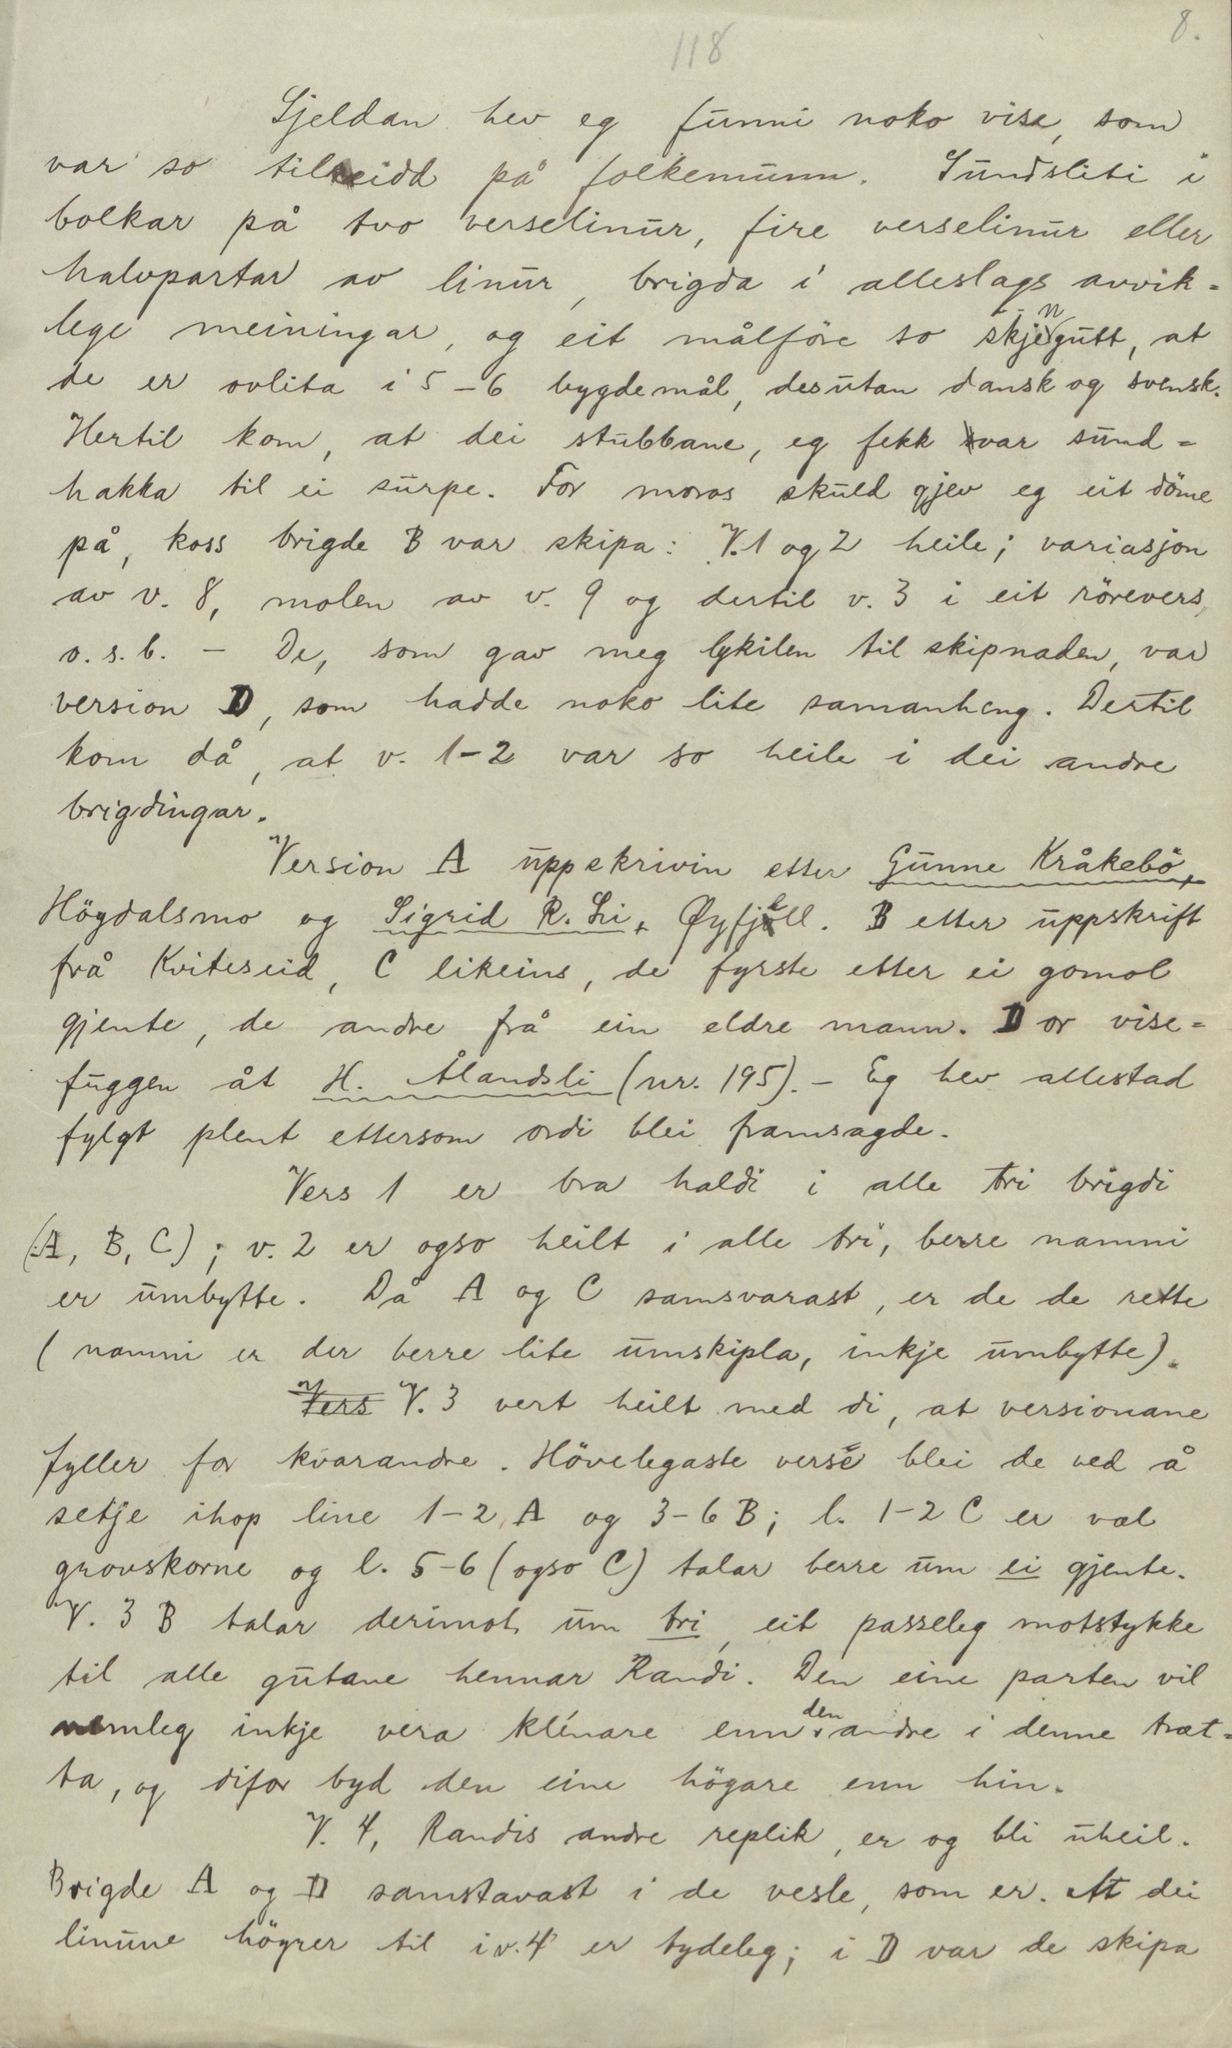 8.
118
Sjeldan hev eg funni noko vise, som
var so tilreidd på folkemunn. Sundsliti i
bolkar på tvo verselinur, fire verselinur eller
halvpartar av linur, brigda i alleslags avvik=
lege meiningar, og eit målföre so skjengutt, at
de er ovlita i 5-6 bygdemål, desutan dansk og svensk.
Hertil kom, at dei stubbane, eg fekk var sund=
hakka til ei surpe. For moros skuld gjev eg eit döme
på, koss brigde B var skipa: V.1 og 2 heile; variasjon
av v. 8, molen av v. 9 og dertil v. 3 i eit rörevers,
o.s.b. – De, som gav meg lykilen til skipnaden, var
version D, som hadde noko lite samanheng. Dertil
kom då, at v. 1-2 var so heile i dei andre
brigdingar.
Version A uppskrivin etter Gunne Kråkebö,
Högdalsmo og Sigrid R. Li, Øyfjell. B etter uppskrift
frå Kviteseid, C likeins, de fyrste etter ei gomol
gjente, de andre frå ein eldre mann. D or vise=
fuggen åt H. Ålandsli (nr. 195). – Eg hev allestad
fylgt plent ettersom ordi blei framsagde.
Vers 1 er bra haldi i alle tri brigdi
(A, B, C); v. 2 er ogso heilt i alle tri, berre namni
er umbytte. Då A og C samsvarast, er de de rette
(namni er der berre lite umskipla, inkje umbytte).
Vers V. 3 vert heilt med di, at versionane
fyller for kvarandre. Hövelegaste verse blei de ved å
setje ihop line 1-2 A og 3-6 B; l. 1-2 C er val
grovskorne og l. 5-6 (ogso C) talar berre um ei gjente.
V. 3 B talar derimot um tri, eit passeleg motstykke
til alle gutane hennar Randi. Den eine parten vil
nemleg inkje vera klénare enn den andre i denne træt=
ta, og difor byd den eine högare enn hin.
V. 4, Randis andre replik, er og bli uheil.
Brigde A og D samstavast i de vesle, som er. At dei
linune högrer til i v. 4 er tydeleg; i D var de skipa